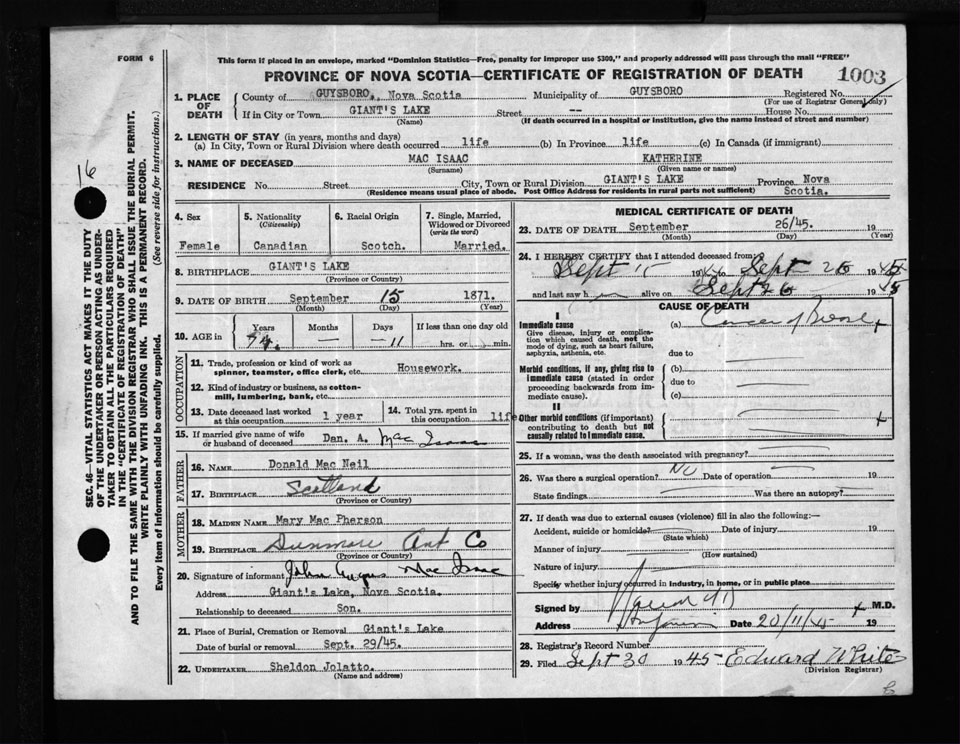 FORM 6
This form if placed in an envelope, marked "Dominion Statistics—Free, penalty for improper use $300," and properly addressed will pass through the mail "FREE"
PROVINCE OF NOVA SCOTIA—CERTIFICATE OF REGISTRATION OF DEATH
1003
1. PLACE OF DEATH
County of GUYSBORO, Nova Scotia Municipality of GUYSBORO Registered No.
(For use of Registrar General only)
If in City or Town GIANT'S LAKE Street -- House No.
(Name) (If death occurred in a hospital or institution, give the name instead of street and number)
2. LENGTH OF STAY (in years, months and days)
(a) In City, Town or Rural Division where death occurred life (b) In Province life (c) In Canada (if immigrant)
3. NAME OF DECEASED MAC ISAAC KATHERINE
(Surname) (Given name or names)
RESIDENCE No. Street City, Town or Rural Division GIANT'S LAKE Province Nova Scotia.
(Residence means usual place of abode. Post Office Address for residents in rural parts not sufficient)
4. Sex
Female
5. Nationality (Citizenship)
Canadian
6. Racial Origin
Scotch.
7. Single, Married, Widowed or Divorced (write the word)
Married.
8. BIRTHPLACE GIANT'S LAKE
(Province or Country)
9. DATE OF BIRTH September 15 1871.
(Month) (Day) (Year)
10. AGE in
Years Months Days If less than one day old
74. — 11 hrs. or min.
OCCUPATION
11. Trade, profession or kind of work as spinner, teamster, office clerk, etc. Housework.
12. Kind of industry or business, as cotton-mill, lumbering, bank, etc.
13. Date deceased last worked at this occupation 1 year
14. Total yrs. spent in this occupation life
15. If married give name of wife or husband of deceased Dan. A. Mac Isaac
FATHER
16. NAME Donald Mac Neil
17. BIRTHPLACE Scotland
(Province or Country)
MOTHER
18. MAIDEN NAME Mary Mac Pherson
19. BIRTHPLACE Dunmore Ant Co
(Province or Country)
20. Signature of informant John Angus Mac Isaac
Address Giant's Lake, Nova Scotia.
Relationship to deceased Son.
21. Place of Burial, Cremation or Removal Giant's Lake
Date of burial or removal Sept. 29/45.
22. UNDERTAKER Sheldon Jolatto.
(Name and address)
MEDICAL CERTIFICATE OF DEATH
23. DATE OF DEATH September 26/45. 19
(Month) (Day) (Year)
24. I HEREBY CERTIFY that I attended deceased from:
Sept 1945 to Sept 26 1945
and last saw h alive on Sept 26 1945
CAUSE OF DEATH
I
Immediate cause
Give disease, injury or complication which caused death, not the mode of dying, such as heart failure, asphyxia, asthenia, etc.
(a) Cancer of Breast
due to
Morbid conditions, if any, giving rise to immediate cause (stated in order proceeding backwards from immediate cause).
(b)
due to
(c)
II
Other morbid conditions (if important) contributing to death but not causally related to immediate cause.
25. If a woman, was the death associated with pregnancy?
26. Was there a surgical operation? No Date of operation 19
State findings Was there an autopsy?
27. If death was due to external causes (violence) fill in also the following:—
Accident, suicide or homicide? Date of injury 19
(State which)
Manner of injury
(How sustained)
Nature of injury
Specify whether injury occurred in industry, in home, or in public place
Signed by M.D.
Address Date 20/11/45 19
28. Registrar's Record Number
29. Filed Sept 30 1945 Edward White
(Division Registrar)
16
SEC. 46—VITAL STATISTICS ACT MAKES IT THE DUTY
OF THE UNDERTAKER OR PERSON ACTING AS UNDER-
TAKER TO OBTAIN ALL THE PARTICULARS REQUIRED
IN THE "CERTIFICATE OF REGISTRATION OF DEATH"
AND TO FILE THE SAME WITH THE DIVISION REGISTRAR WHO SHALL ISSUE THE BURIAL PERMIT.
WRITE PLAINLY WITH UNFADING INK. THIS IS A PERMANENT RECORD.
Every item of information should be carefully supplied. (See reverse side for instructions.)